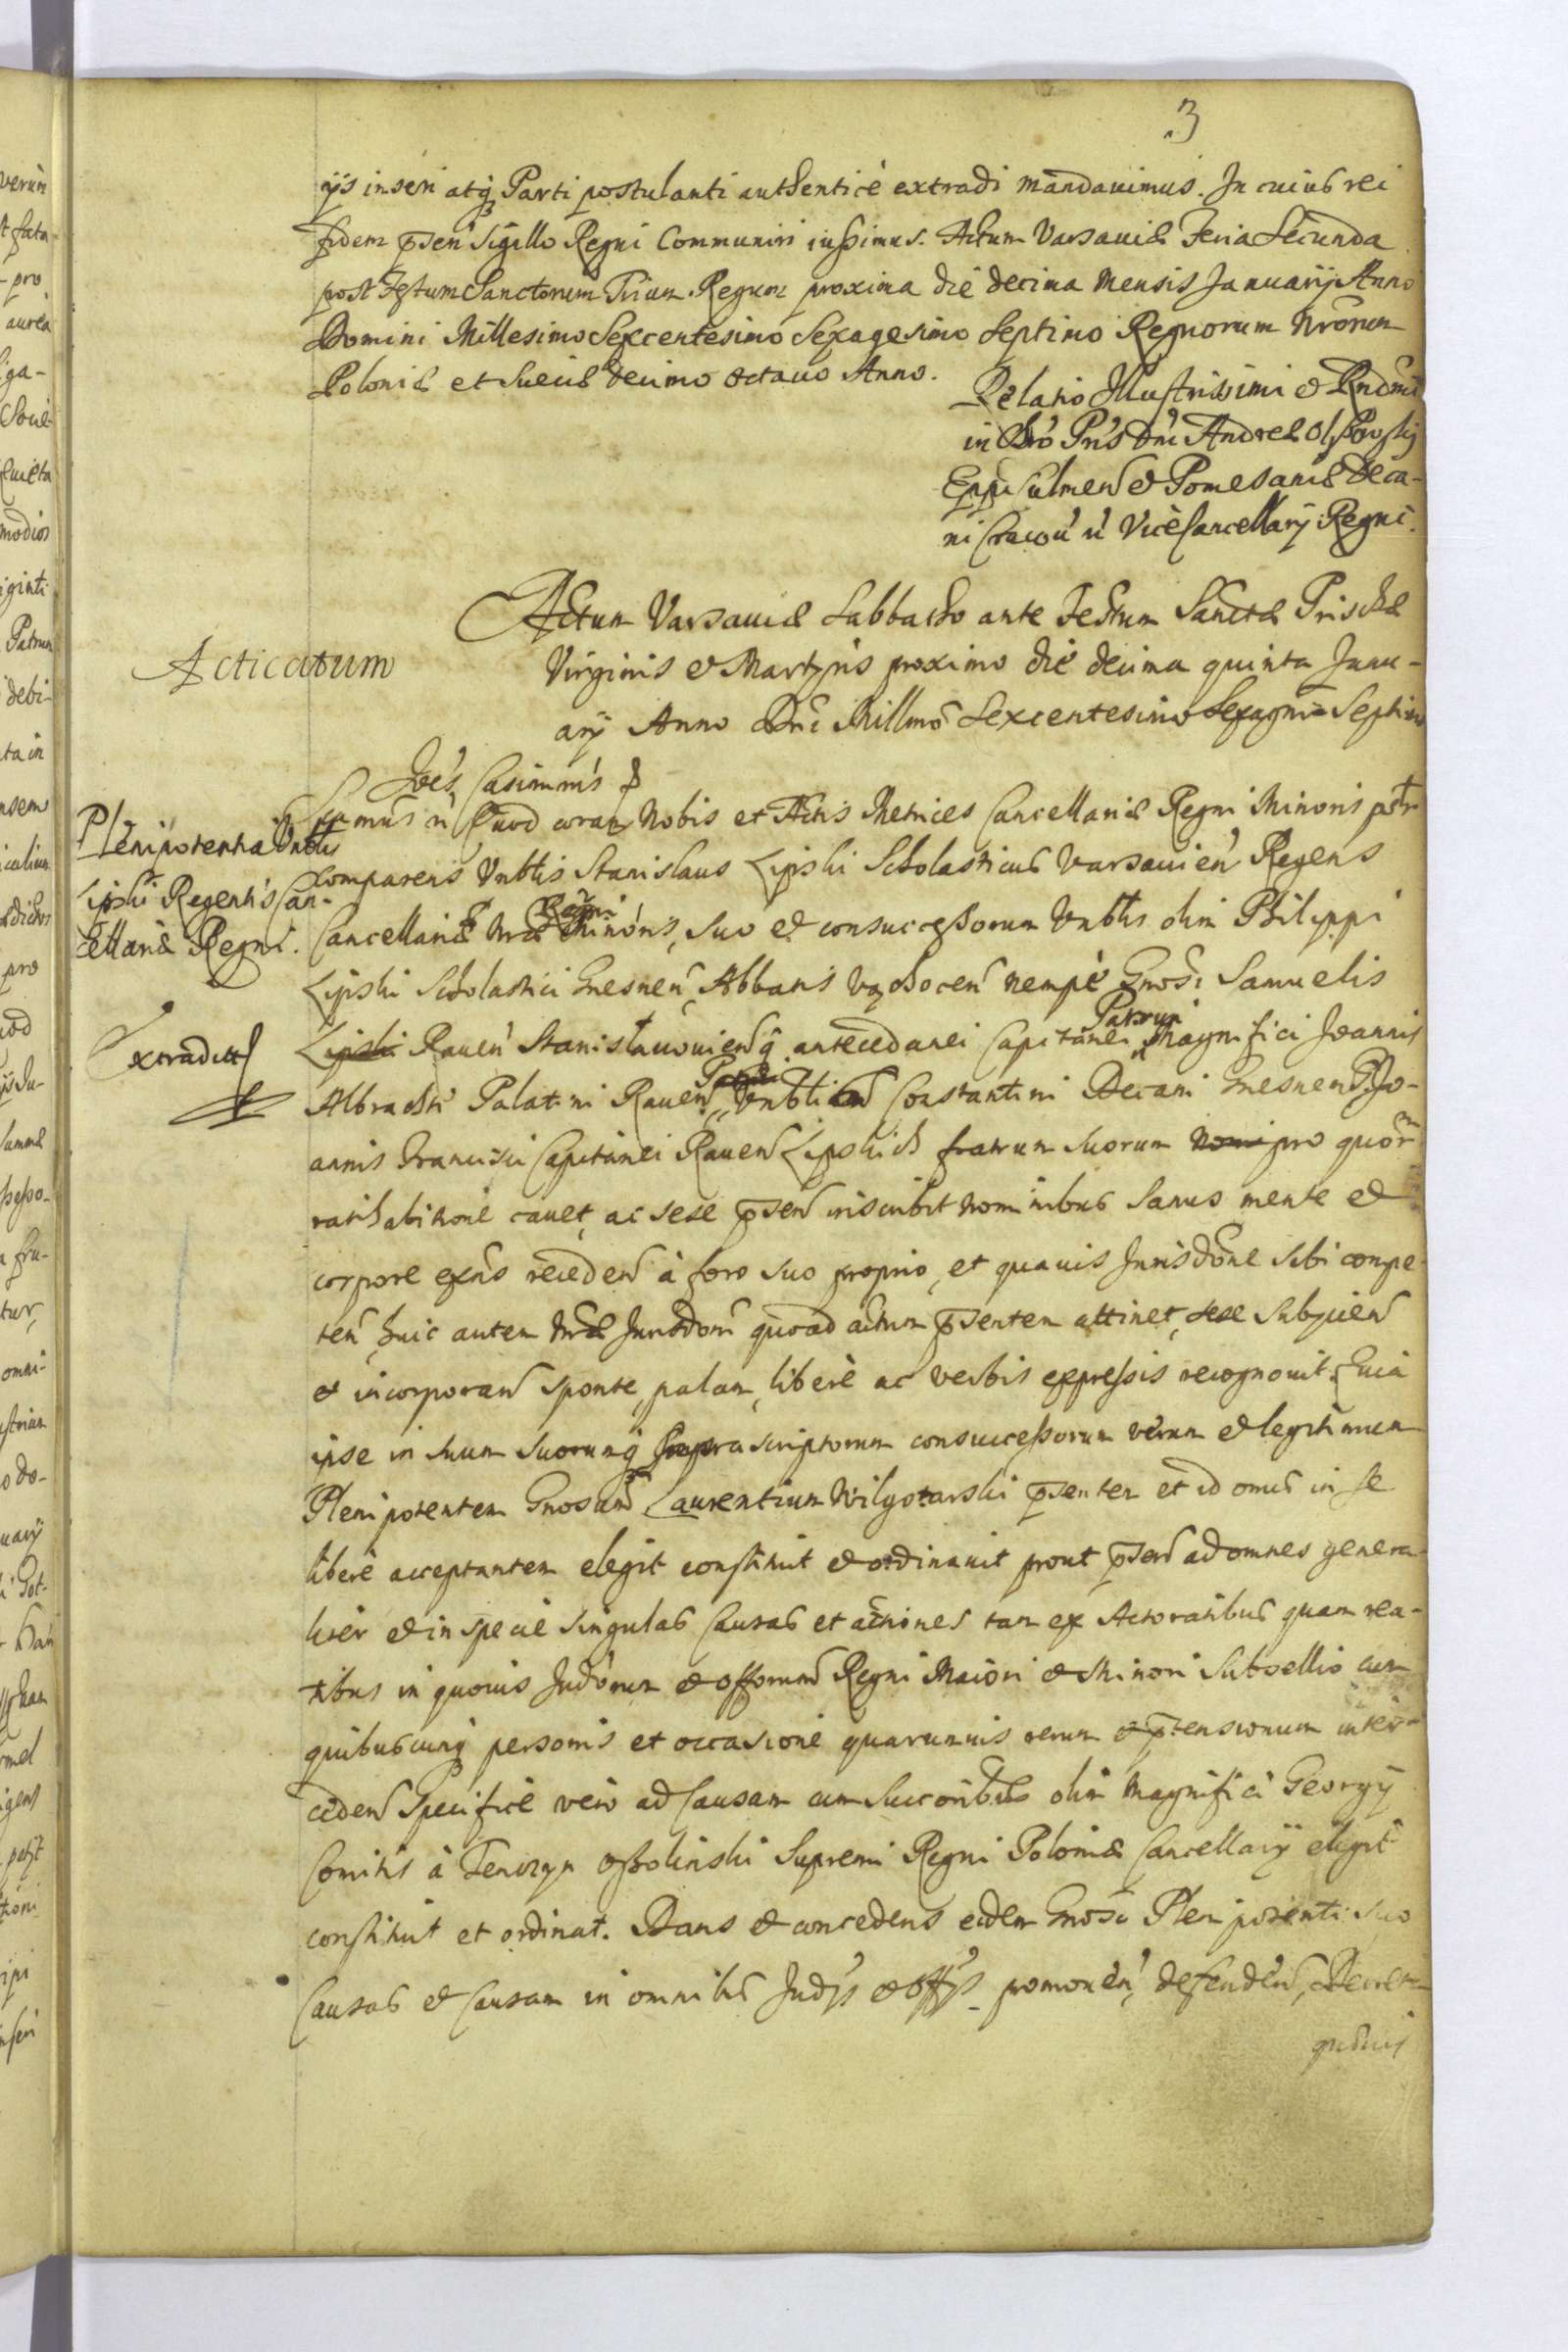 3
ijs inseri atq Parti postulanti authenticè extradi mandauimus. In cuius rei
fidem pñsen Sigillo Regni Communiri iussimus. Actum Varsauiæ Feria Secunda
post Festum Sanctorum Trium Regum proxima die decima Mensis Januarij Anno
Domini Millesimo Sexcentesimo Sexagesimo Septimo Regnorum Nrorum
Poloniæ et Sueciæ decimo octauo Anno.
Relatio Illustrissimi et Rndmi
in Chro Pris Dni Andreæ Olszowski
Eppi Culmen et Pomesaniæ Deca-
ni Cracou n Vice Cancellarij Regni.
Actum Varsauiæ Sabbatho ante Festum Sanctæ Priscæ
Virginis et Martyris proximo die decima quinta Janu-
arij Anno Dni Millmo Sexcentesimo Sexagmo Septimo
Acticatum
Joes Casimirus
Plenipotentia Vnblis
Lipski Regentis Can-
cellariæ Regni.
Extradita
mus n Quod coram Nobis et Actis Metrices Cancellariæ Regni Minoris pstr
comparens Vnblis Stanislaus Lipski Scholasticus Varsauien Regens
Cancellariæ Nræ Regni Minoris, suo et consuccessorum Vnblis olim Philippi
Lipski Scholastici Gnesnen, Abbatis Vąchocen nempè Gnosi Samuelis
Lipski Rauen Stanislawouienq antecedanei Capitanei Patrui Magnifici Joannis
Albrachti Palatini Rauen, Vnblium Constantini Decani Gnesnen Jo-
annis Francisci Capitanei Rauen Lipskich fratrum suorum pro quor
ratihabitione cauet, ac sese pñsen inscribit nominibus sanus mente et
corpore exns receden à foro suo proprio, et quauis Jurisdone sibi compe-
ten, huic autem Nræ Jurisdoni quoad actum pñsentem attinet, sese subijcien
et incorporan sponte, palam, liberè ac verbis expressis recognouit. Quia
ipse in suum suorumq supra scriptorum consuccessorum verum et legitimum
Plenipotentem Gnosum Laurentium Wilgotarski pñsentem et id onus in se
liberè acceptantem elegit constituit et ordinauit prout pñsen ad omnes genera-
liter et in specie singulas Causas et actiones tam ex Actoratibus quam rea-
tibus in quouis Judiorum et offorum Regni Maiori et Minori Subsellio cum
quibuscunq personis et occasione quarumuis rerum et ptensionum inter-
ceden Specificè vero ad Causam cum Succoribus olim Magnifici Georgij
Comitis à Tenczyn Ossolinski Supremi Regni Poloniæ Cancellarij elegit
constituit et ordinat. Dans et concedens eidem Gnoso Plenipotenti suo
Causas et Causam in omnibus Judijs et offijs promouen, defenden, Decreta